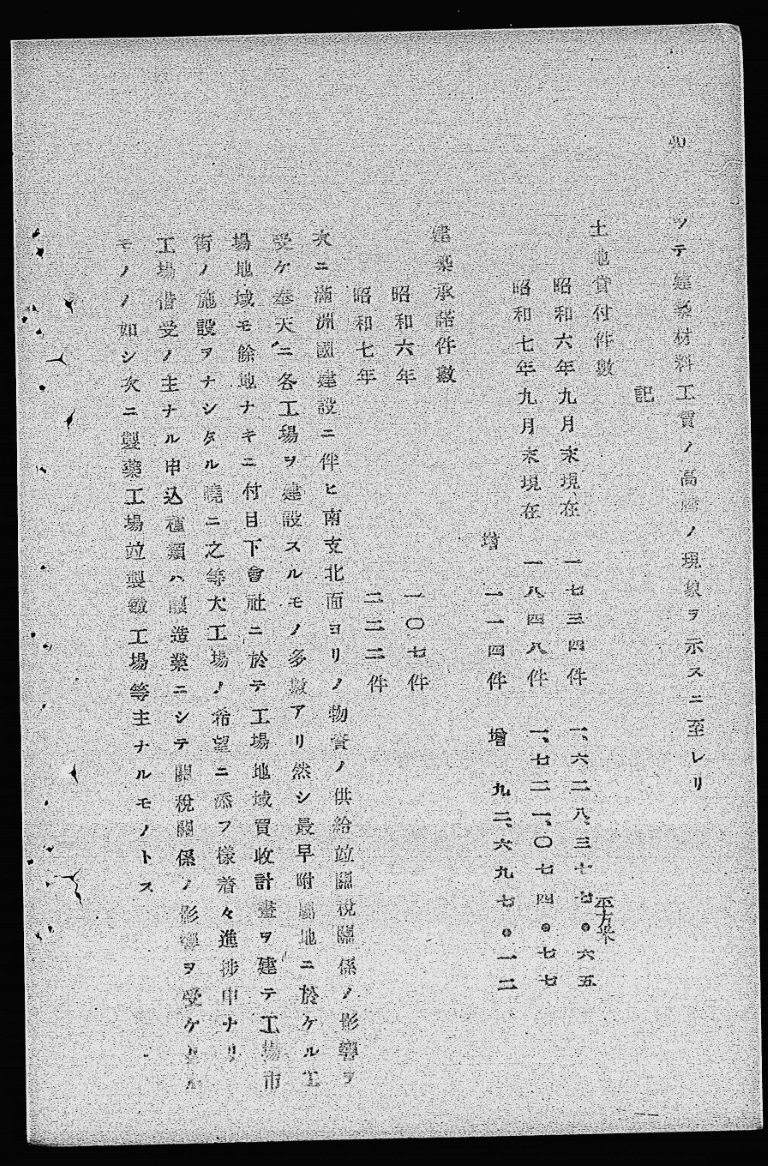 ツテ建築材料工賃ノ高騰ノ現象ヲ示スニ至レリ
記
土地貸付件數
昭和六年九月末現在 一七三四件 一、六二八、三七七。六五平方米
昭和七年九月末現在 一八四八件 一、七二一、〇七四。七七
增 一一四件 增 九二、六九七。一二
建築承諾件數
昭和六年 一〇七件
昭和七年 二二二件
次ニ滿洲國建設ニ伴ヒ南支北面ヨリノ物資ノ供給竝關稅關係ノ影響ヲ
受ケ奉天ニ各工場ヲ建設スルモノ多數アリ然シ最早附屬地ニ於ケル工
場地域モ餘地ナキニ付目下會社ニ於テ工場地域買收計畫ヲ建テ工場市
街ノ施設ヲナシタル曉ニ之等大工場ノ希望ニ添フ樣着々進捗中ナリ
工場借受ノ主ナル申込種類ハ釀造業ニシテ關稅關係ノ影響ヲ受ケ
モノノ如シ次ニ製藥工場竝製鐵工場等主ナルモノトス